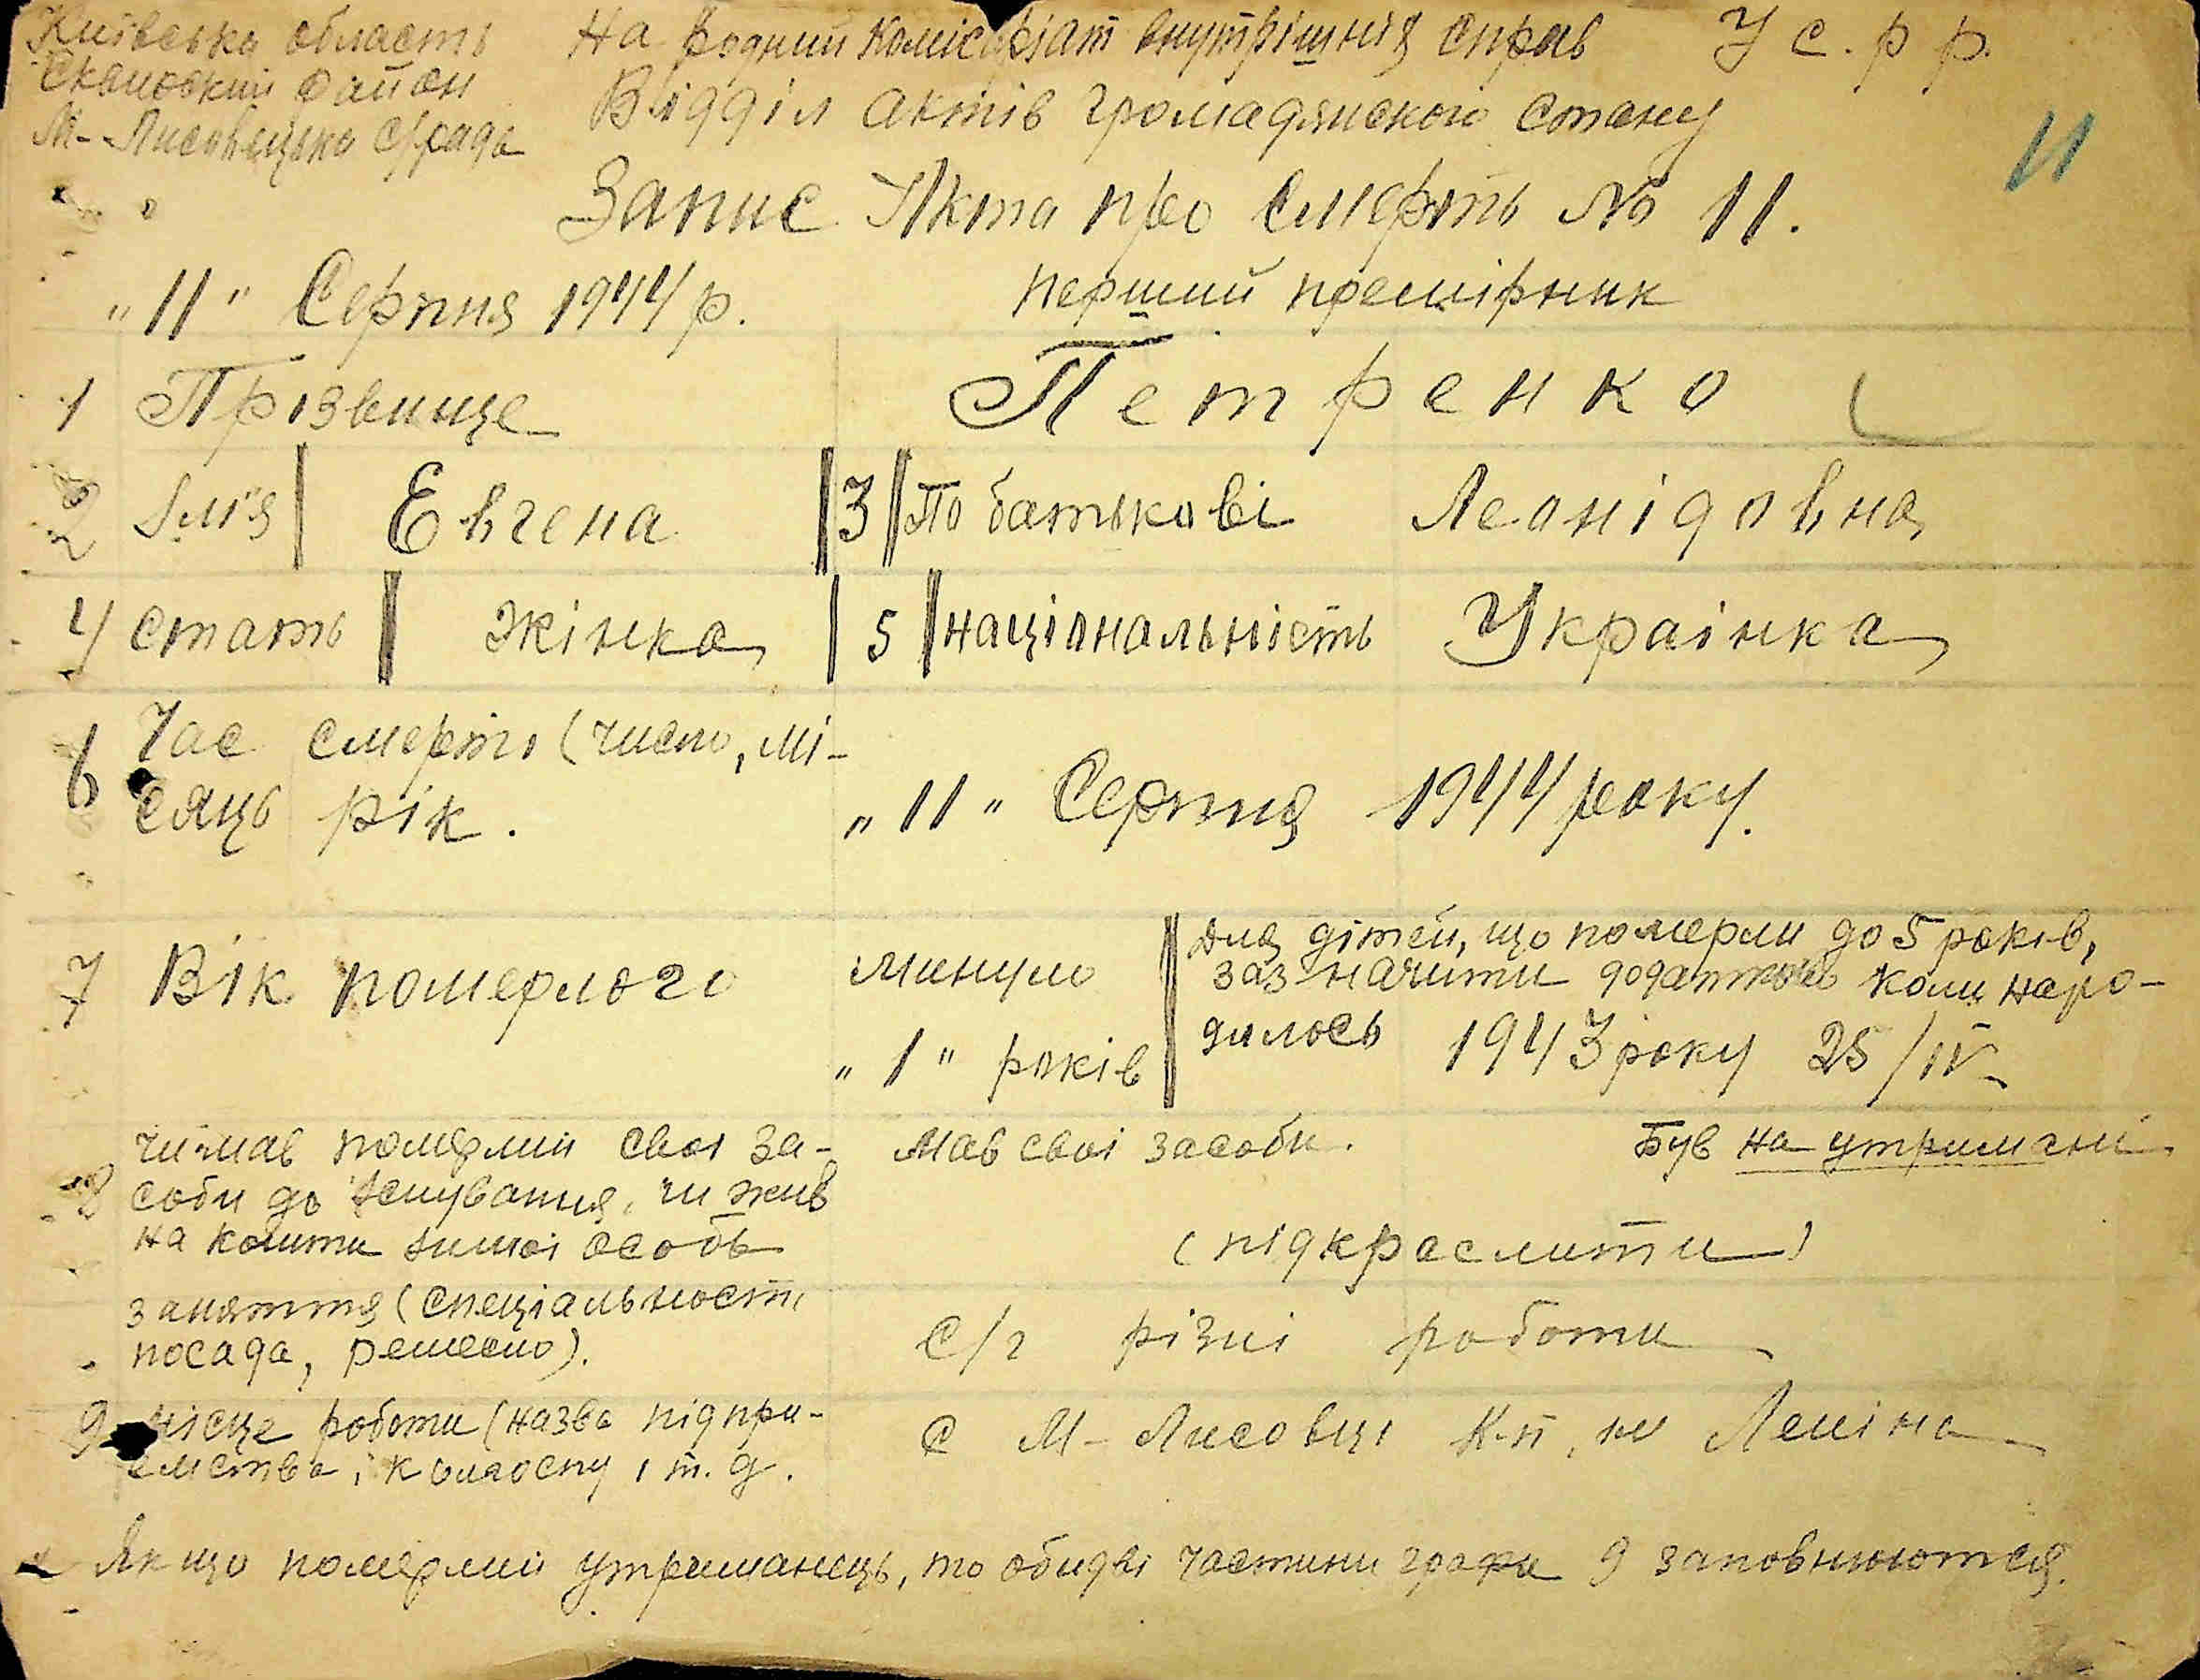 Київська область
Сквирський район
М-Лисовецька с/рада
На родний Комісаріат внутрішніх справ У С. Р Р.
Відділ актів громадянского стану
11
Запис Акта про Смерть № 11.
"11" Серпня 1944 р. перший промірник
1 Прізвище Петренко
2 Імя Евгена 3 По батькові Леонідовна
4 стать Жінка 5 національність Украінка
6 Час смерті (число, мі-
сяць рік. "11" Серпня 1944 року.
7 Вік померлого минуло
"1" років
Для дітей, що померли до 5 років,
зазначити додатково коли наро-
дилось 1943 року 25/IV
8 чи мав померлий своі за-
соби до існування, чи жив
на кошти іншоі особи
Мав своі засоби. Був на утримані
(підкреслити)
заняття (спеціальність
посада, ремесло). С/г різні роботи
9 місце роботи (назва підпри-
емства, колгоспу і т. д. С М-Лисовці К-п, ім Леніна
Якщо померлий утриманець, то обидві частини графи 9 заповнюються.